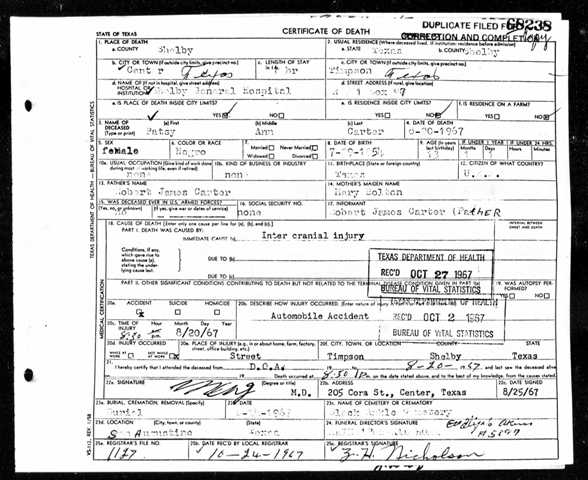 DUPLICATE FILED FOR
68238
STATE OF TEXAS
CERTIFICATE OF DEATH
CORRECTION AND COMPLETION
1. PLACE OF DEATH
a. COUNTY Shelby
2. USUAL RESIDENCE (Where deceased lived. If institution: residence before admission)
a. STATE Texas b. COUNTY Shelby
b. CITY OR TOWN (If outside city limits, give precinct no.) Cent r Texas
c. LENGTH OF STAY hr
c. CITY OR TOWN (If outside city limits, give precinct no.) Timpson Texas
d. NAME OF (If not in hospital, give street address) HOSPITAL OR INSTITUTION Shelby General Hospital
d. STREET ADDRESS (If rural, give location)
e. IS PLACE OF DEATH INSIDE CITY LIMITS? YES NO
e. IS RESIDENCE INSIDE CITY LIMITS? YES NO
f. IS RESIDENCE ON A FARM? YES NO
3. NAME OF DECEASED (Type or print) (a) First Patsy (b) Middle Ann (c) Last Carter
4. DATE OF DEATH 8-20-1967
5. SEX female
6. COLOR OR RACE Negro
7. Married Never Married Widowed Divorced
8. DATE OF BIRTH
9. AGE (In years last birthday) IF UNDER 1 YEAR Months Days IF UNDER 24 HRS. Hours Min.
10a. USUAL OCCUPATION (Give kind of work done during most of working life, even if retired) none
10b. KIND OF BUSINESS OR INDUSTRY none
11. BIRTHPLACE (State or foreign country) Texas
12. CITIZEN OF WHAT COUNTRY?
13. FATHER'S NAME Robert James Carter
14. MOTHER'S MAIDEN NAME Mary Bolton
15. WAS DECEASED EVER IN U.S. ARMED FORCES? (Yes, no, or unknown) (If yes, give war or dates of service) No
16. SOCIAL SECURITY NO. none
17. INFORMANT Robert James Carter (FatHER
18. CAUSE OF DEATH [Enter only one cause per line for (a), (b), and (c).]
INTERVAL BETWEEN ONSET AND DEATH
PART I. DEATH WAS CAUSED BY:
IMMEDIATE CAUSE (a) Inter cranial injury
Conditions, if any, which gave rise to above cause (a), stating the underlying cause last.
DUE TO (b)
DUE TO (c)
TEXAS DEPARTMENT OF HEALTH
REC'D OCT 27 1967
BUREAU OF VITAL STATISTICS
PART II. OTHER SIGNIFICANT CONDITIONS CONTRIBUTING TO DEATH BUT NOT RELATED TO THE TERMINAL DISEASE CONDITION GIVEN IN PART I(a)
19. WAS AUTOPSY PERFORMED? YES NO
20a. ACCIDENT SUICIDE HOMICIDE
20b. DESCRIBE HOW INJURY OCCURRED. (Enter nature of injury
Automobile Accident
TEXAS DEPARTMENT OF HEALTH
REC'D OCT 2 1967
BUREAU OF VITAL STATISTICS
20c. TIME OF INJURY Hour Month Day Year 8/20/67
20d. INJURY OCCURRED WHILE AT WORK NOT WHILE AT WORK
20e. PLACE OF INJURY (e.g., in or about home, farm, factory, street, office building, etc.) Street
20f. CITY, TOWN, OR LOCATION COUNTY STATE
Timpson Shelby Texas
21. I hereby certify that I attended the deceased from D.O.A. 8-20-1967, and last saw the deceased alive
Death occurred at 8:30 P m. on the date stated above, and to the best of my knowledge, from the causes stated.
22a. SIGNATURE (Degree or title) M.D.
22b. ADDRESS 205 Cora St., Center, Texas
22c. DATE SIGNED 8/25/67
23a. BURIAL, CREMATION, REMOVAL (Specify) Burial
23b. DATE
23c. NAME OF CEMETERY OR CREMATORY
23d. LOCATION (City, town, or county) (State) San Augustine Texas
24. FUNERAL DIRECTOR'S SIGNATURE
25a. REGISTRAR'S FILE NO. 1127
25b. DATE REC'D BY LOCAL REGISTRAR 10-24-1967
25c. REGISTRAR'S SIGNATURE Z.H. Nicholson
TEXAS DEPARTMENT OF HEALTH — BUREAU OF VITAL STATISTICS
MEDICAL CERTIFICATION
VS-112, REV. 1/58